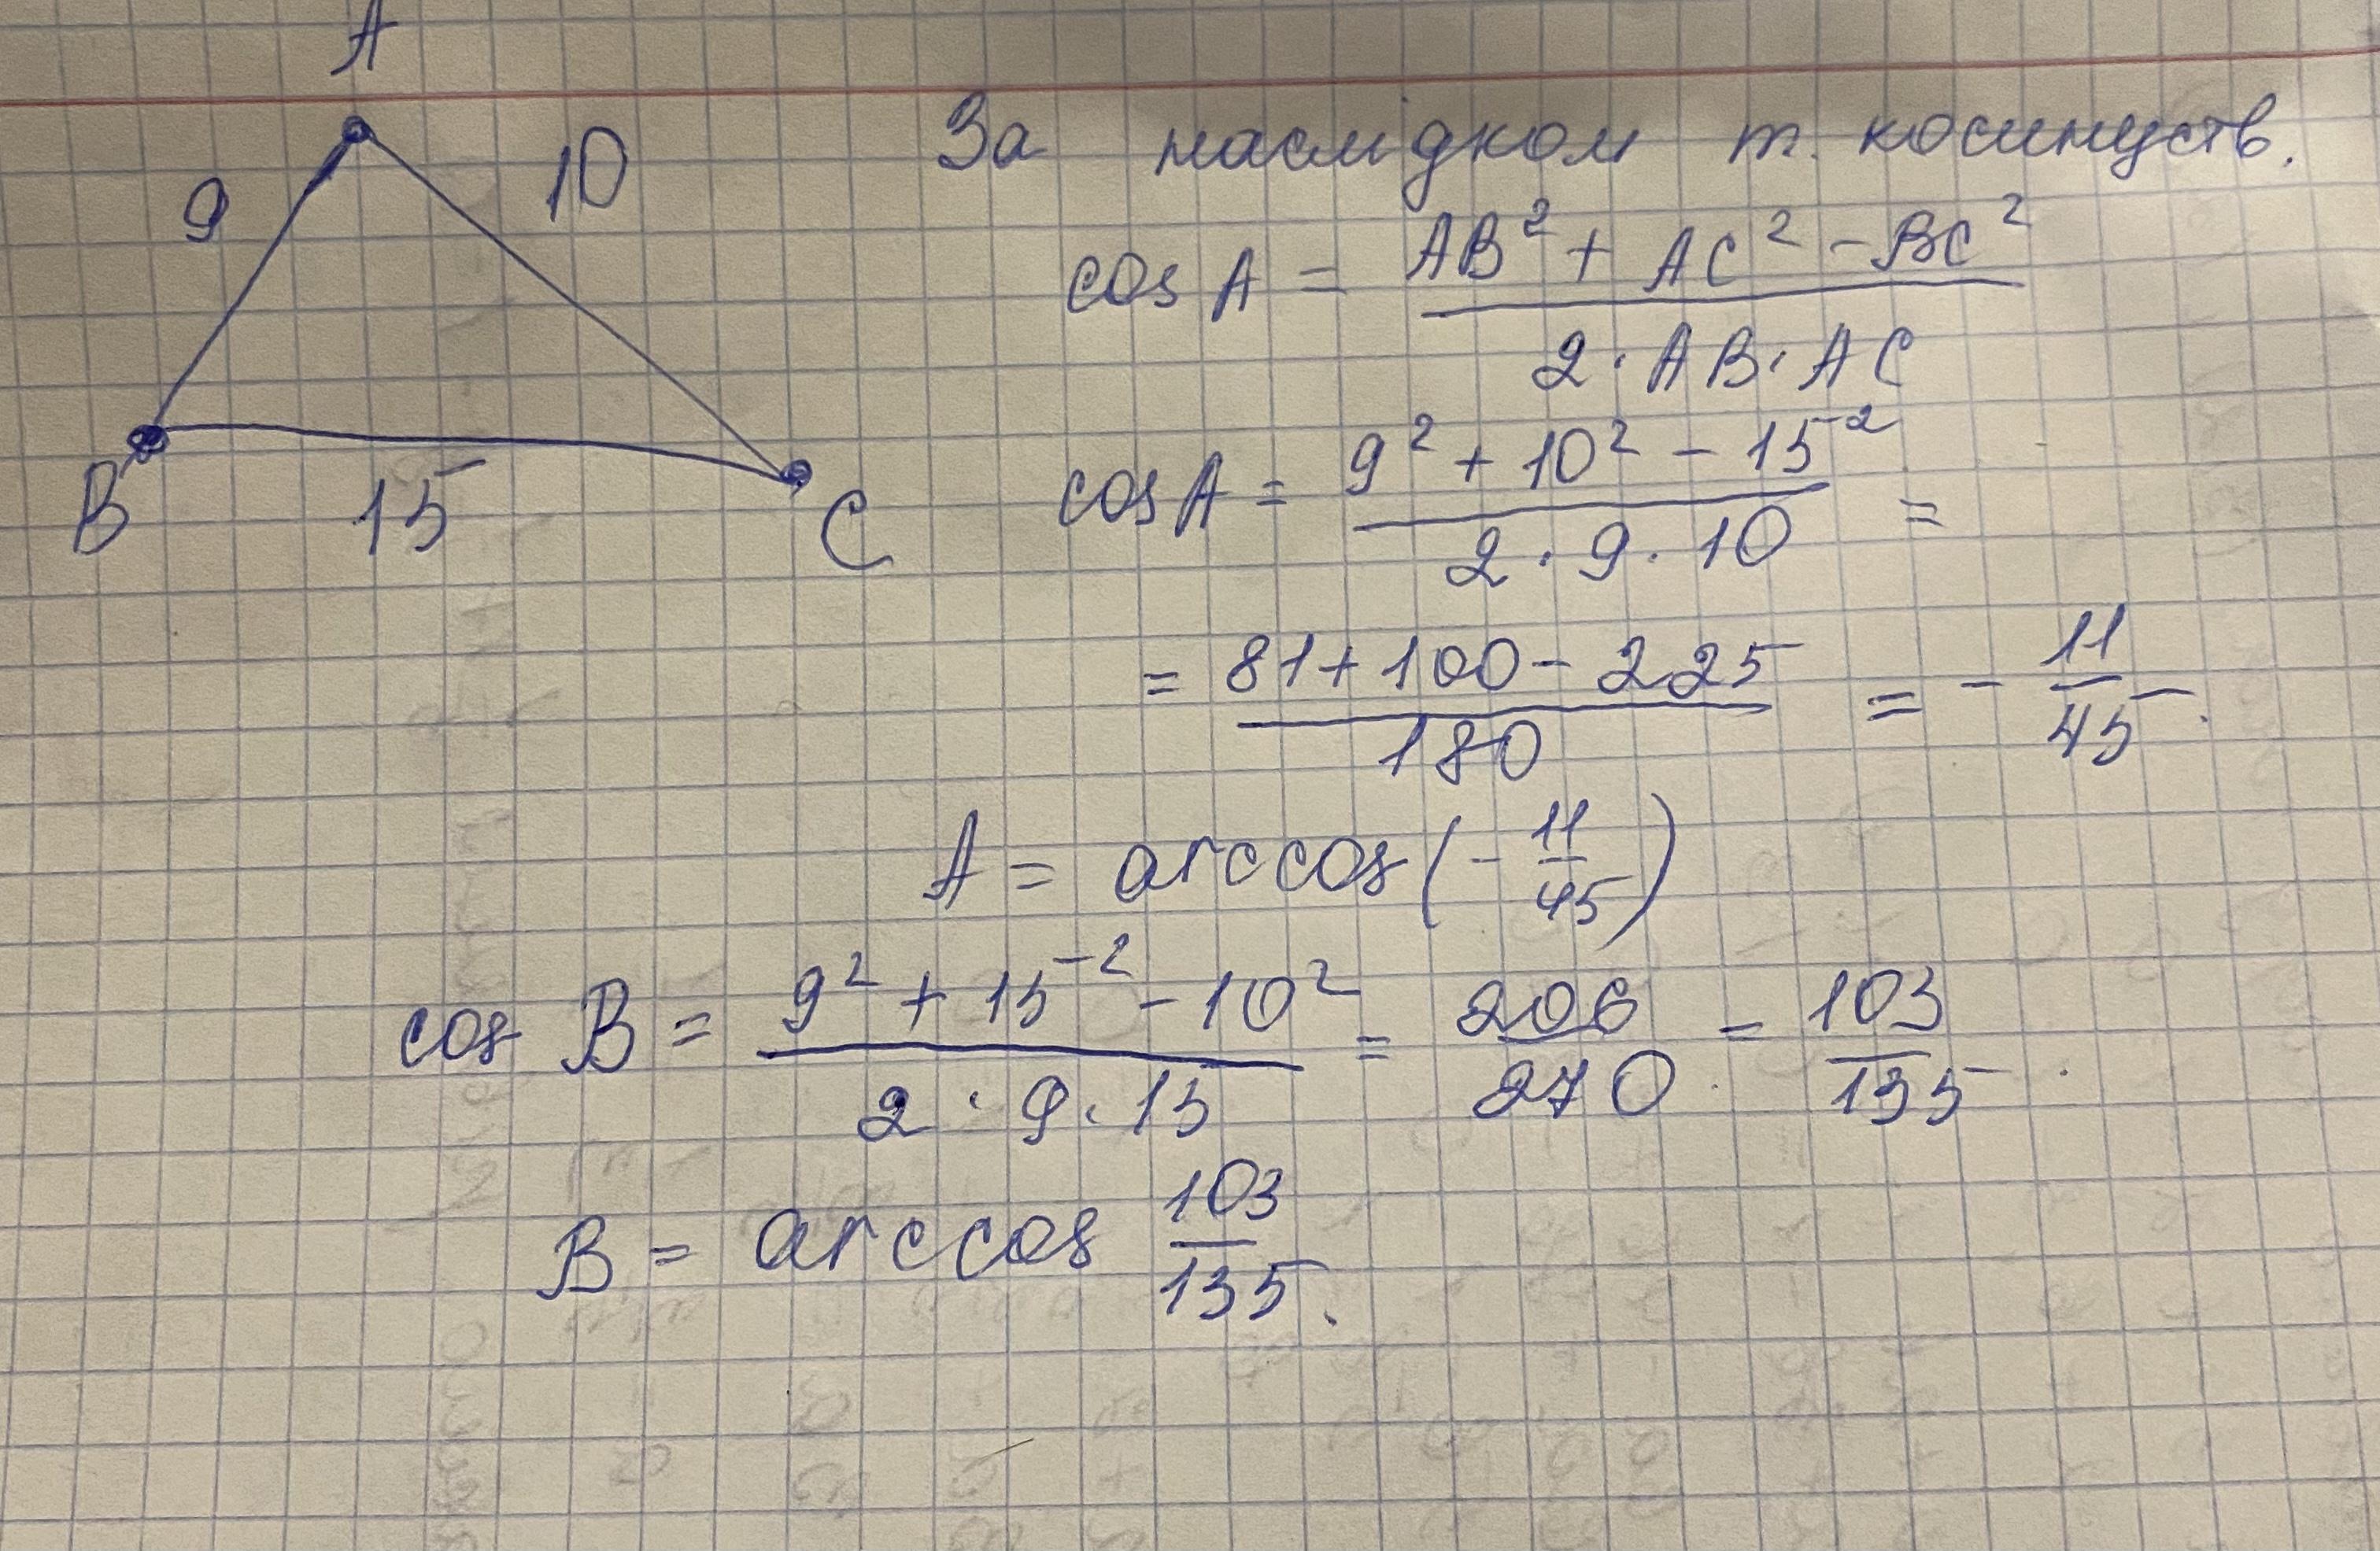 A
9
10
B
15
C
За наслідком т. косинусів.
cos A = (AB² + AC² - BC²) / (2 · AB · AC)
cos A = (9² + 10² - 15²) / (2 · 9 · 10) =
= (81 + 100 - 225) / 180 = - 11/45.
A = arccos(- 11/45)
cos B = (9² + 15² - 10²) / (2 · 9 · 15) = 206/270 = 103/135.
B = arccos 103/135.